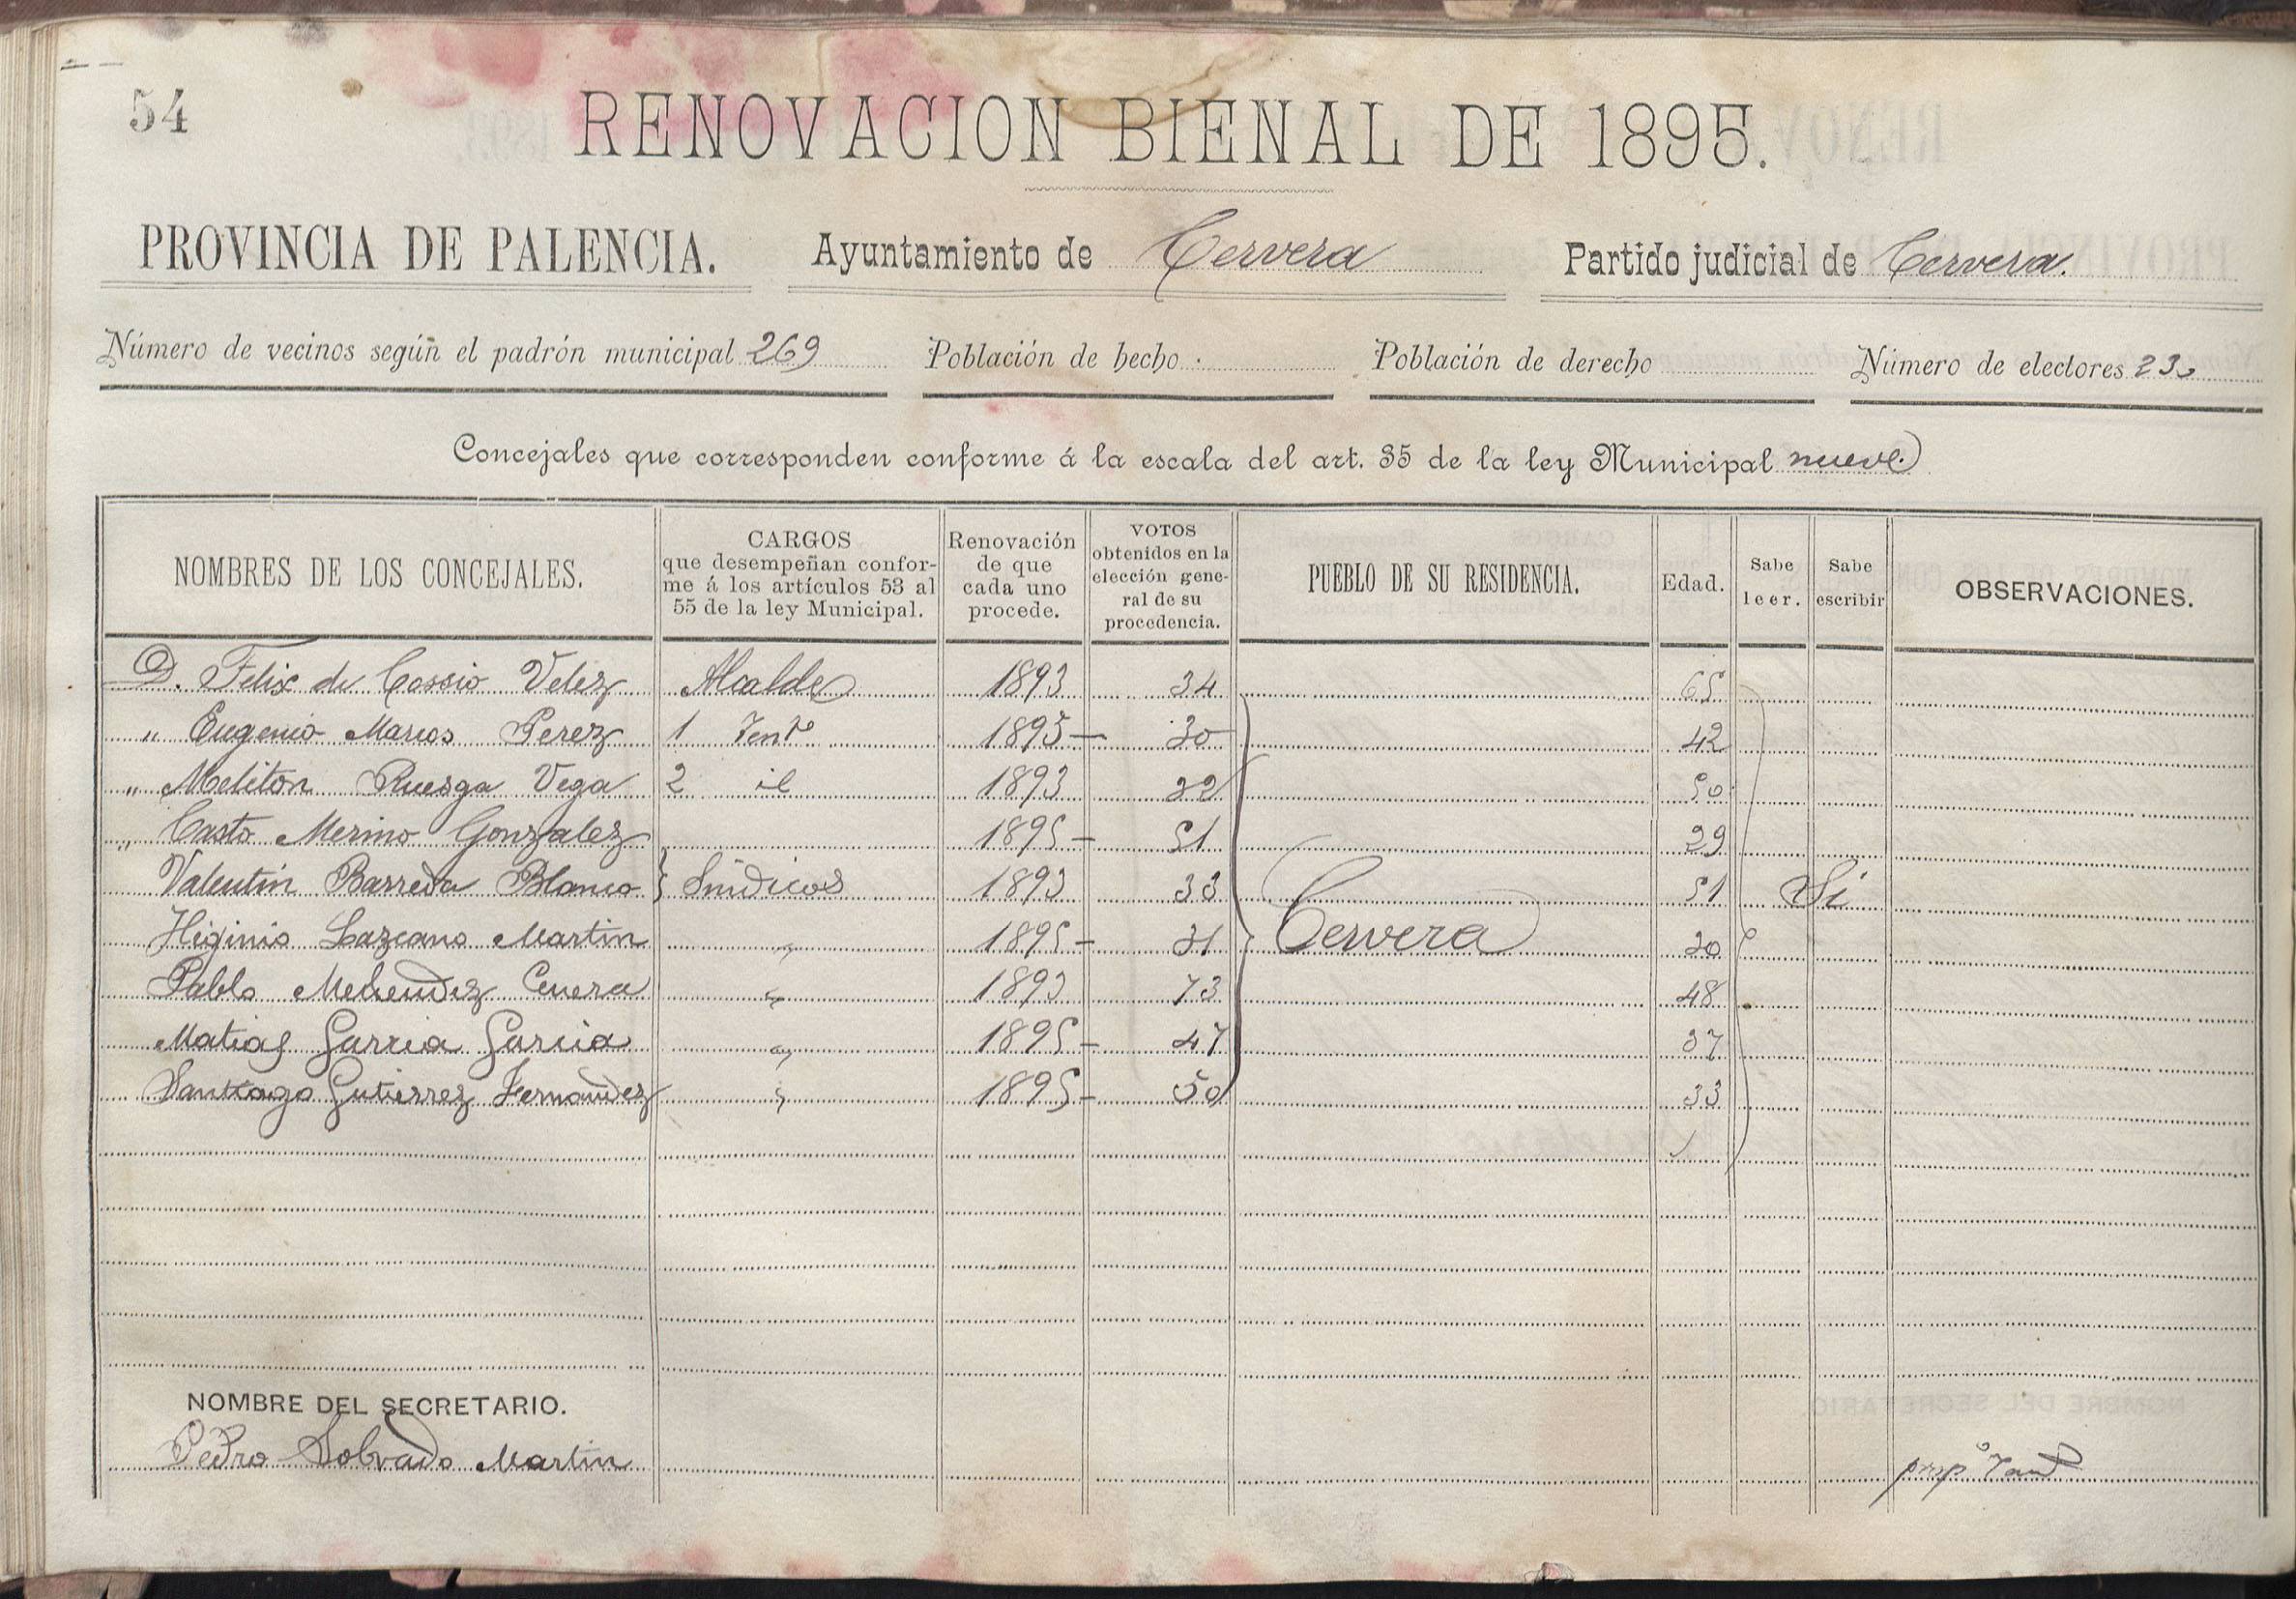 54
RENOVACION BIENAL DE 1895.
PROVINCIA DE PALENCIA. Ayuntamiento de Cervera Partido judicial de Cervera.
Número de vecinos según el padrón municipal 269 Población de hecho Población de derecho Número de electores
Concejales que corresponden conforme á la escala del art. 35 de la ley Municipal nueve
NOMBRES DE LOS CONCEJALES. CARGOS que desempeñan conforme á los artículos 53 al 55 de la ley Municipal. Renovación de que cada uno procede. VOTOS obtenidos en la elección general de su procedencia. PUEBLO DE SU RESIDENCIA. Edad. Sabe leer. Sabe escribir OBSERVACIONES.
D. Felix de Cossio Velez Alcalde 1893 34 65
" Eugenio Marcos Perez 1 Tente 1895 — 30 42
" Meliton Ruesga Vega 2 id 1893 32 50
" Casto Merino Gonzalez 1895 — 51 29
Valentin Barreda Blanco } Sindicos 1893 33 51 Si
Higinio Lazcano Martin " 1895 — 31 Cervera 30
Pablo Melendez Cenera " 1893 73 48
Matias Garcia Garcia " 1895 — 47 37
Santiago Gutierrez Fernandez " 1895 — 50 33
NOMBRE DEL SECRETARIO.
Pedro Lobrado Martin